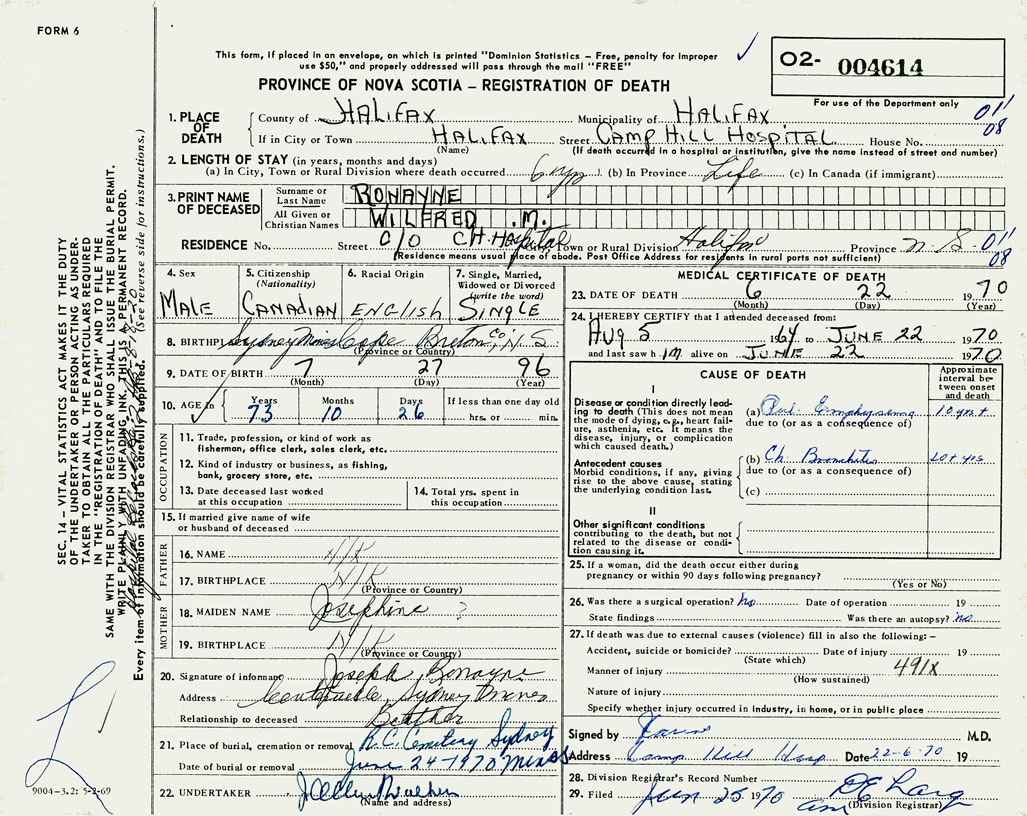 FORM 6
This form, if placed in an envelope, on which is printed "Dominion Statistics – Free, penalty for improper
use $50," and properly addressed will pass through the mail "FREE"
PROVINCE OF NOVA SCOTIA – REGISTRATION OF DEATH
O2- 004614
For use of the Department only
011
08
1. PLACE OF DEATH
County of HALIFAX Municipality of HALIFAX
If in City or Town HALIFAX Street CAMP HILL HOSPITAL House No.
(Name) (If death occurred in a hospital or institution, give the name instead of street and number)
2. LENGTH OF STAY (in years, months and days)
(a) In City, Town or Rural Division where death occurred 6 yrs (b) In Province Life (c) In Canada (if immigrant)
3. PRINT NAME OF DECEASED
Surname or Last Name RONAYNE
All Given or Christian Names WILFRED .M.
RESIDENCE No. Street C/O C.H. Hospital City, Town or Rural Division Halifax Province N.S. 011
08
(Residence means usual place of abode. Post Office Address for residents in rural parts not sufficient)
4. Sex
MALE
5. Citizenship
(Nationality)
CANADIAN
6. Racial Origin
ENGLISH
7. Single, Married, Widowed or Divorced
(write the word)
SINGLE
8. BIRTHPLACE Sydney Mines Cape Breton Co. N.S
(Province or Country)
9. DATE OF BIRTH 7 27 96
(Month) (Day) (Year)
10. AGE in Years Months Days If less than one day old
73 10 26 hrs. or min.
OCCUPATION
11. Trade, profession, or kind of work as
fisherman, office clerk, sales clerk, etc.
12. Kind of industry or business, as fishing,
bank, grocery store, etc.
13. Date deceased last worked
at this occupation
14. Total yrs. spent in
this occupation
15. If married give name of wife
or husband of deceased
FATHER
16. NAME N/K
17. BIRTHPLACE N/K
(Province or Country)
MOTHER
18. MAIDEN NAME Josephine ?
19. BIRTHPLACE N/K
(Province or Country)
20. Signature of informant Joseph Ronayne
Address Sydney Mines
Relationship to deceased Brother
21. Place of burial, cremation or removal R.C. Cemetery Sydney
Date of burial or removal June 24-1970 Mines
22. UNDERTAKER
(Name and address)
MEDICAL CERTIFICATE OF DEATH
23. DATE OF DEATH 6 22 1970
(Month) (Day) (Year)
24. I HEREBY CERTIFY that I attended deceased from:
AUG 5 1964 to JUNE 22 1970
and last saw h im alive on JUNE 22 1970
CAUSE OF DEATH
Approximate interval between onset and death
I
Disease or condition directly leading to death (This does not mean the mode of dying, e.g., heart failure, asthenia, etc. It means the disease, injury, or complication which caused death.)
(a) Pul Emphysema 10 yrs +
due to (or as a consequence of)
Antecedent causes
Morbid conditions, if any, giving rise to the above cause, stating the underlying condition last.
(b) Ch. Bronchitis 10+ yrs
due to (or as a consequence of)
(c)
II
Other significant conditions
contributing to the death, but not related to the disease or condition causing it.
25. If a woman, did the death occur either during
pregnancy or within 90 days following pregnancy?
(Yes or No)
26. Was there a surgical operation? No Date of operation 19
State findings Was there an autopsy? no
27. If death was due to external causes (violence) fill in also the following: –
Accident, suicide or homicide? Date of injury 19
(State which)
Manner of injury 491X
(How sustained)
Nature of injury
Specify whether injury occurred in industry, in home, or in public place
Signed by M.D.
Address Camp Hill Hosp Date 22-6-70 19
28. Division Registrar's Record Number
29. Filed Jun 25 1970
(Division Registrar)
SEC. 14 – VITAL STATISTICS ACT MAKES IT THE DUTY
OF THE UNDERTAKER OR PERSON ACTING AS UNDERTAKER
TO OBTAIN ALL THE PARTICULARS REQUIRED
IN THE "REGISTRATION OF DEATH" AND TO FILE THE
SAME WITH THE DIVISION REGISTRAR WHO SHALL ISSUE THE BURIAL PERMIT.
WRITE PLAINLY WITH UNFADING INK. THIS IS A PERMANENT RECORD.
Every item of information should be carefully supplied. (See reverse side for instructions.)
9004-3.2: 5-2-69